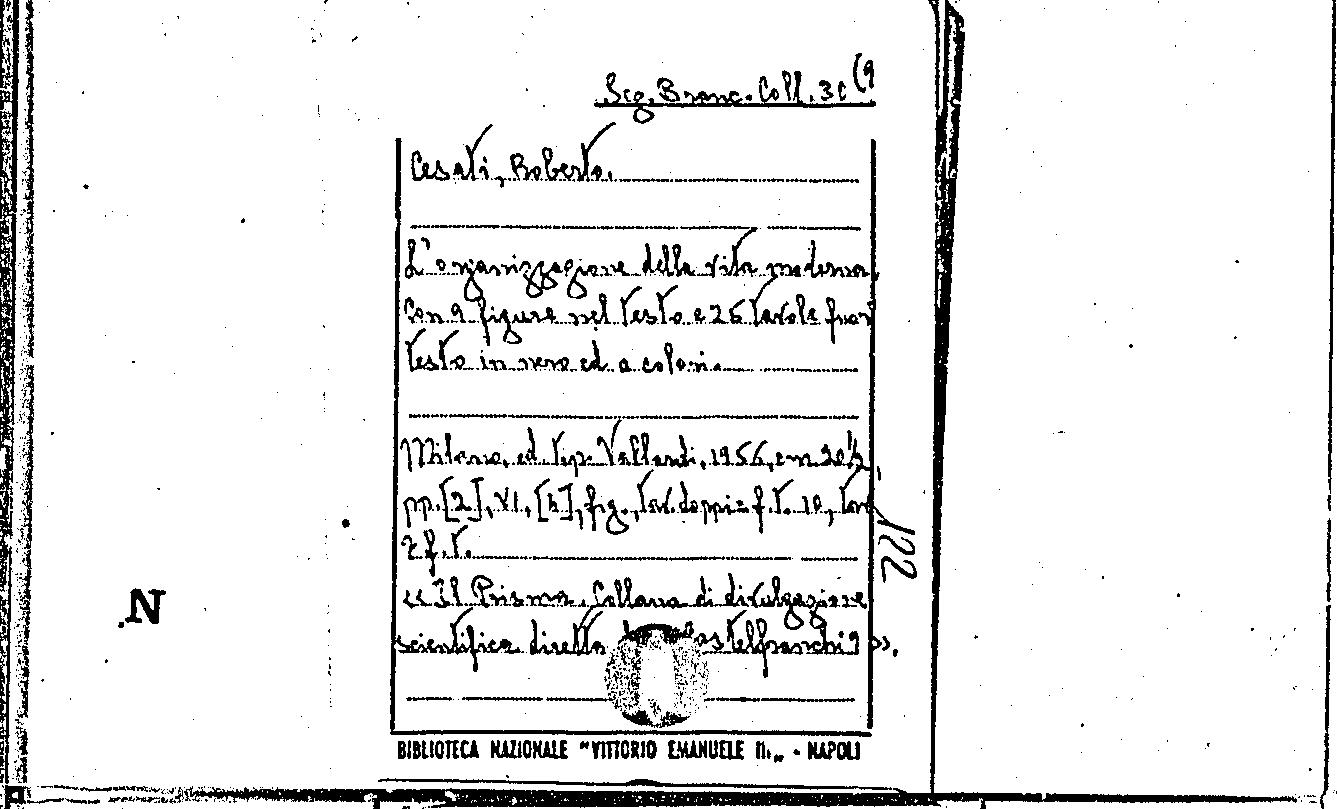 Seg. Branc. Coll. 3c (9
Cesati, Roberto.
L'organizzazione della vita moderna.
Con 9 figure nel testo e 25 tavole fuori
testo in nero ed a colori.
Milano, ed. tip. Vallardi, 1956, cm 20½,
pp. [2], VI, [6], fig., tav. doppie f. t. 10, tav.
2 f. t.
<< Il Prisma. Collana di divulgazione
scientifica diretta
>>.
122
N
BIBLIOTECA NAZIONALE "VITTORIO EMANUELE II„ - NAPOLI